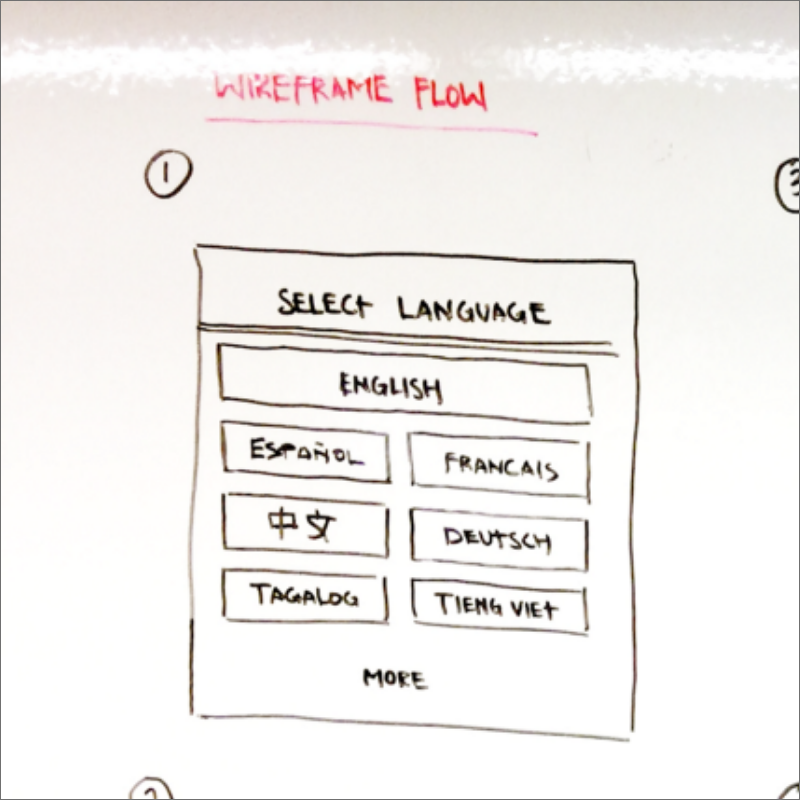 WIREFRAME FLOW
1
3
SELECT LANGUAGE
ENGLISH
ESPAÑOL
FRANCAIS
中文
DEUTSCH
TAGALOG
TIENG VIET
MORE
2